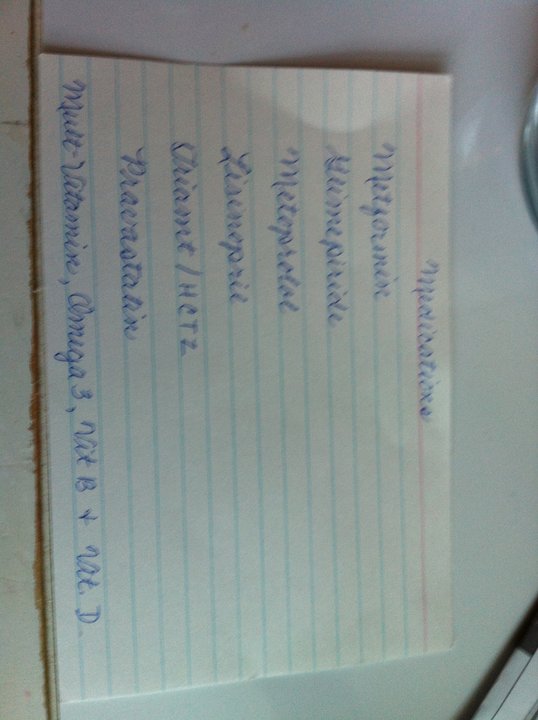 Medications
Metformin
Glimepiride
Metoprolol
Lisinopril
Triamt/HCTZ
Pravastatin
Multi-Vitamin, Omega 3, Vit B + Vit. D